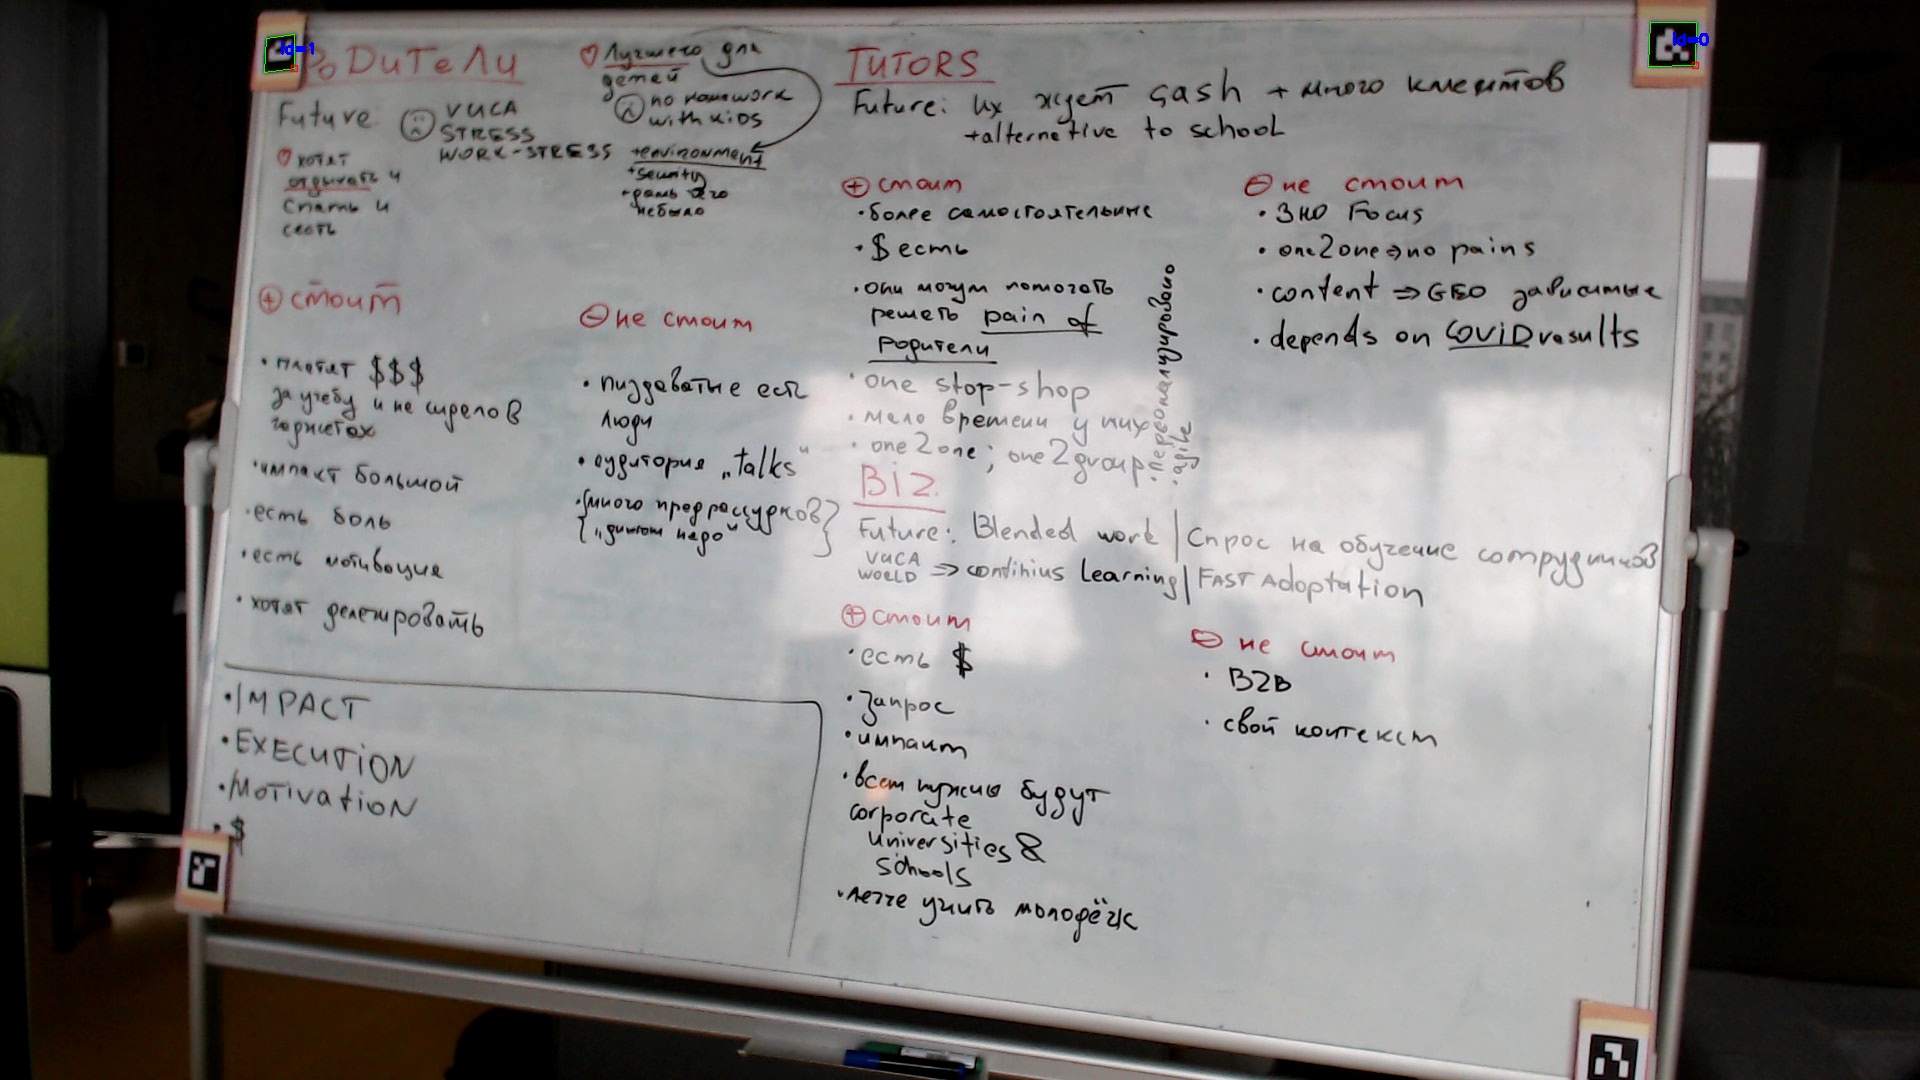 id=1
РОДИТЕЛИ
Future: VUCA
STRESS
WORK-STRESS
хотят
отдыхать и
спать и
сесть
Лучшего для
детей
no homework
with kids
+environment
+security
небыло
⊕ стоит
• платят $$$
за учебу и не
• импакт большой
• есть боль
• есть мотивация
• хотят делегировать
⊖ не стоит
• пиздаватые есть
люди
• аудитория „talks"
• {много предрассудков}
{„диплом надо"}
• IMPACT
• EXECUTION
• MOTIVATION
• $
id=0
TUTORS
Future: их ждет cash + много клиентов
+alternetive to school
⊕ стоит
• более самостоятельные
• $ есть
• они могут помогать
решать pain of
родители
• one stop-shop
• мало времени у них
• one2one; one2group
• персонализировано
• agile
⊖ не стоит
• ЗНО Focus
• one2one ⇒ no pains
• content ⇒ GEO зависимые
• depends on COVID results
BIZ.
Future: Blended work | Спрос на обучение сотрудников
VUCA
WORLD ⇒ continius Learning | FAST Adoptation
⊕ стоит
• есть $
• Запрос
• импакт
• всем нужно будут
corporate
universities &
schools
• легче учить молодёжь
⊖ не стоит
• B2B
• свой контекст